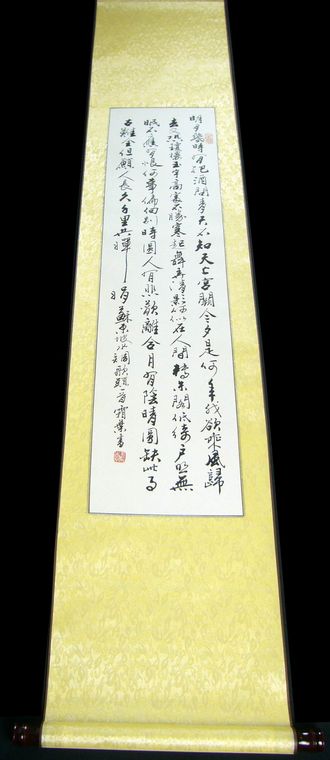 明月幾時有把酒問青天不知天上宮闕今夕是何年我欲乘風歸
去又恐瓊樓玉宇高處不勝寒起舞弄清影何似在人間轉朱閣低綺戶照無
眠不應有恨何事偏向別時圓人有悲歡離合月有陰晴圓缺此事
古難全但願人長久千里共嬋娟蘇東坡水調歌頭書